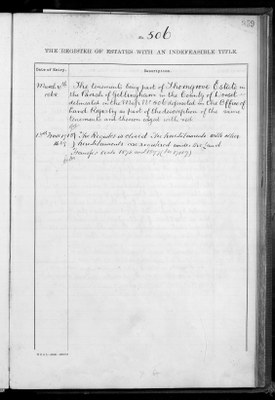 No. 506
THE REGISTER OF ESTATES WITH AN INDEFEASIBLE TITLE.
Date of Entry. Description.
March The tenements being part of Thorngrove Estate in
the Parish of Gillingham in the County of Dorset
delineated in the Map No 506 deposited in the Office of
Land Registry as part of the description of the same
tenements and thereon edged with red
The Register is closed The hereditaments with other
hereditaments are registered under the Land
Transfer Acts 1875 and 1897